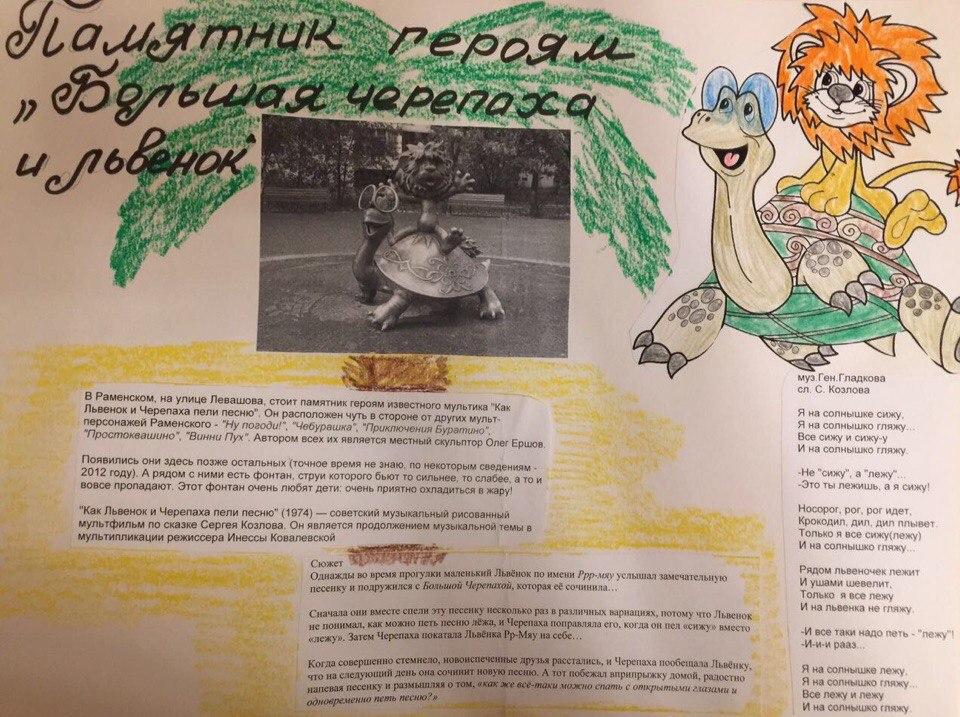 Памятник героям
„Большая черепаха
и львенок“
В Раменском, на улице Левашова, стоит памятник героям известного мультика "Как
Львенок и Черепаха пели песню". Он расположен чуть в стороне от других мульт-
персонажей Раменского - "Ну погоди!", "Чебурашка", "Приключения Буратино",
"Простоквашино", "Винни Пух". Автором всех их является местный скульптор Олег Ершов.
Появились они здесь позже остальных (точное время не знаю, по некоторым сведениям -
2012 году). А рядом с ними есть фонтан, струи которого бьют то сильнее, то слабее, а то и
вовсе пропадают. Этот фонтан очень любят дети: очень приятно охладиться в жару!
"Как Львенок и Черепаха пели песню" (1974) — советский музыкальный рисованный
мультфильм по сказке Сергея Козлова. Он является продолжением музыкальной темы в
мультипликации режиссера Инессы Ковалевской
Сюжет
Однажды во время прогулки маленький Львёнок по имени Ррр-мяу услышал замечательную
песенку и подружился с Большой Черепахой, которая её сочинила…
Сначала они вместе спели эту песенку несколько раз в различных вариациях, потому что Львенок
не понимал, как можно петь песню лёжа, и Черепаха поправляла его, когда он пел «сижу» вместо
«лежу». Затем Черепаха покатала Львёнка Рр-Мяу на себе…
Когда совершенно стемнело, новоиспеченные друзья расстались, и Черепаха пообещала Львёнку,
что на следующий день она сочинит новую песню. А тот побежал вприпрыжку домой, радостно
напевая песенку и размышляя о том, «как же всё-таки можно спать с открытыми глазами и
одновременно петь песню?»
муз.Ген.Гладкова
сл. С. Козлова
Я на солнышке сижу,
Я на солнышко гляжу...
Все сижу и сижу-у
И на солнышко гляжу.
-Не "сижу", а "лежу"...
-Это ты лежишь, а я сижу!
Носорог, рог, рог идет,
Крокодил, дил, дил плывет.
Только я все сижу(лежу)
И на солнышко гляжу...
Рядом львеночек лежит
И ушами шевелит,
Только я все лежу
И на львенка не гляжу.
-И все таки надо петь - "лежу"!
-И-и-и рааз...
Я на солнышке лежу.
Я на солнышко гляжу...
Все лежу и лежу
И на солнышко гляжу.